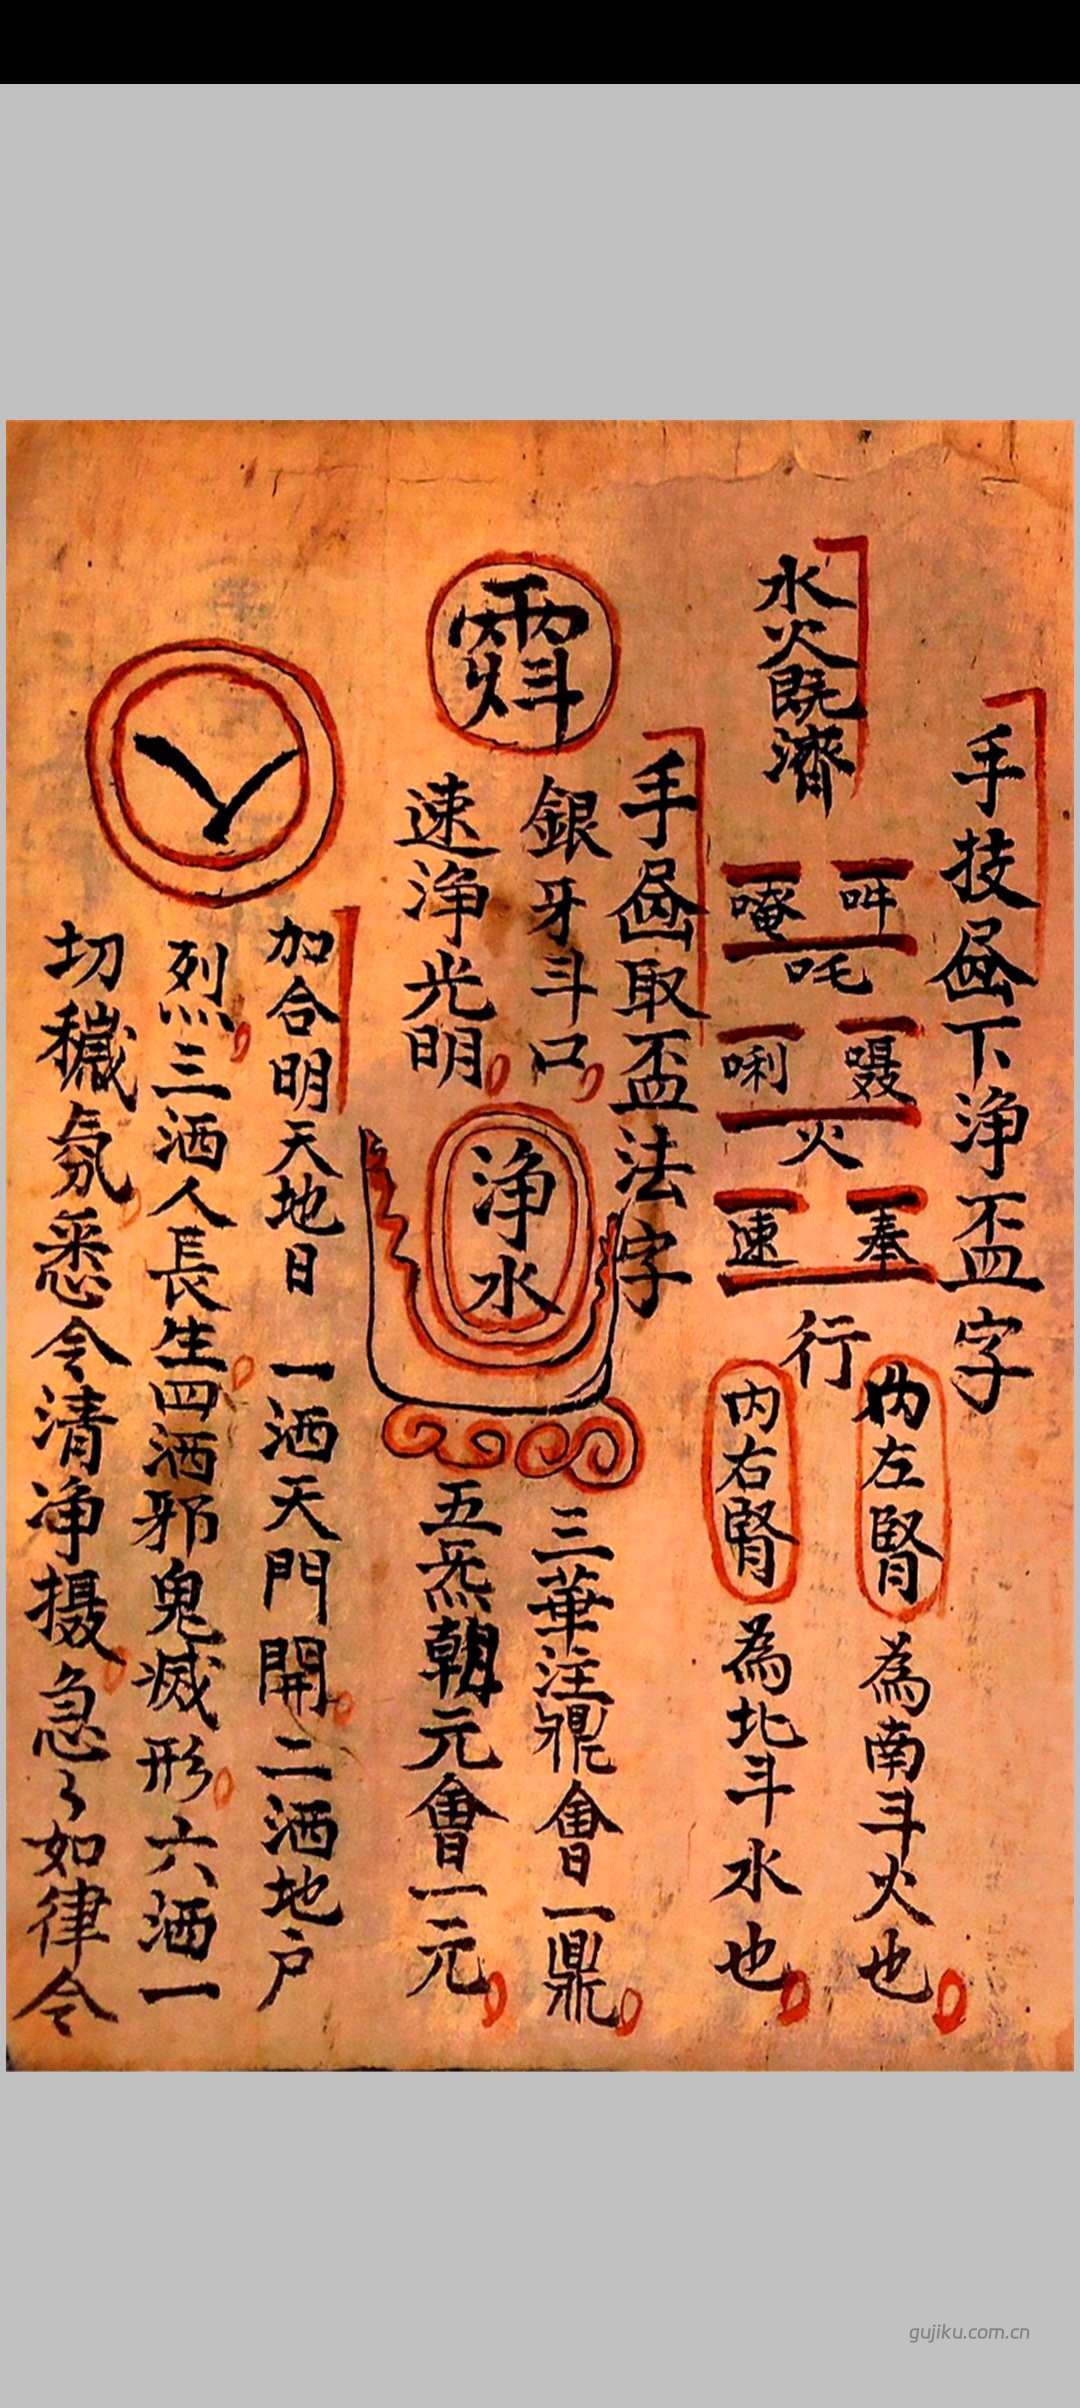 手技𥁕下浄盃字
水火既濟
吽
唵
吒
囁
唎
火
奉
速
行
内左腎為南斗火也
内右腎為北斗水也
手𥁕取盃法字
銀牙斗口
速浄光明
浄水
三華注鼎會一鼎
五炁朝元會一元
加合明天地日
一洒天門開二洒地户
烈三洒人長生四洒邪鬼滅形六洒一
切穢氛悉令清浄摄急々如律令
gujiku.com.cn